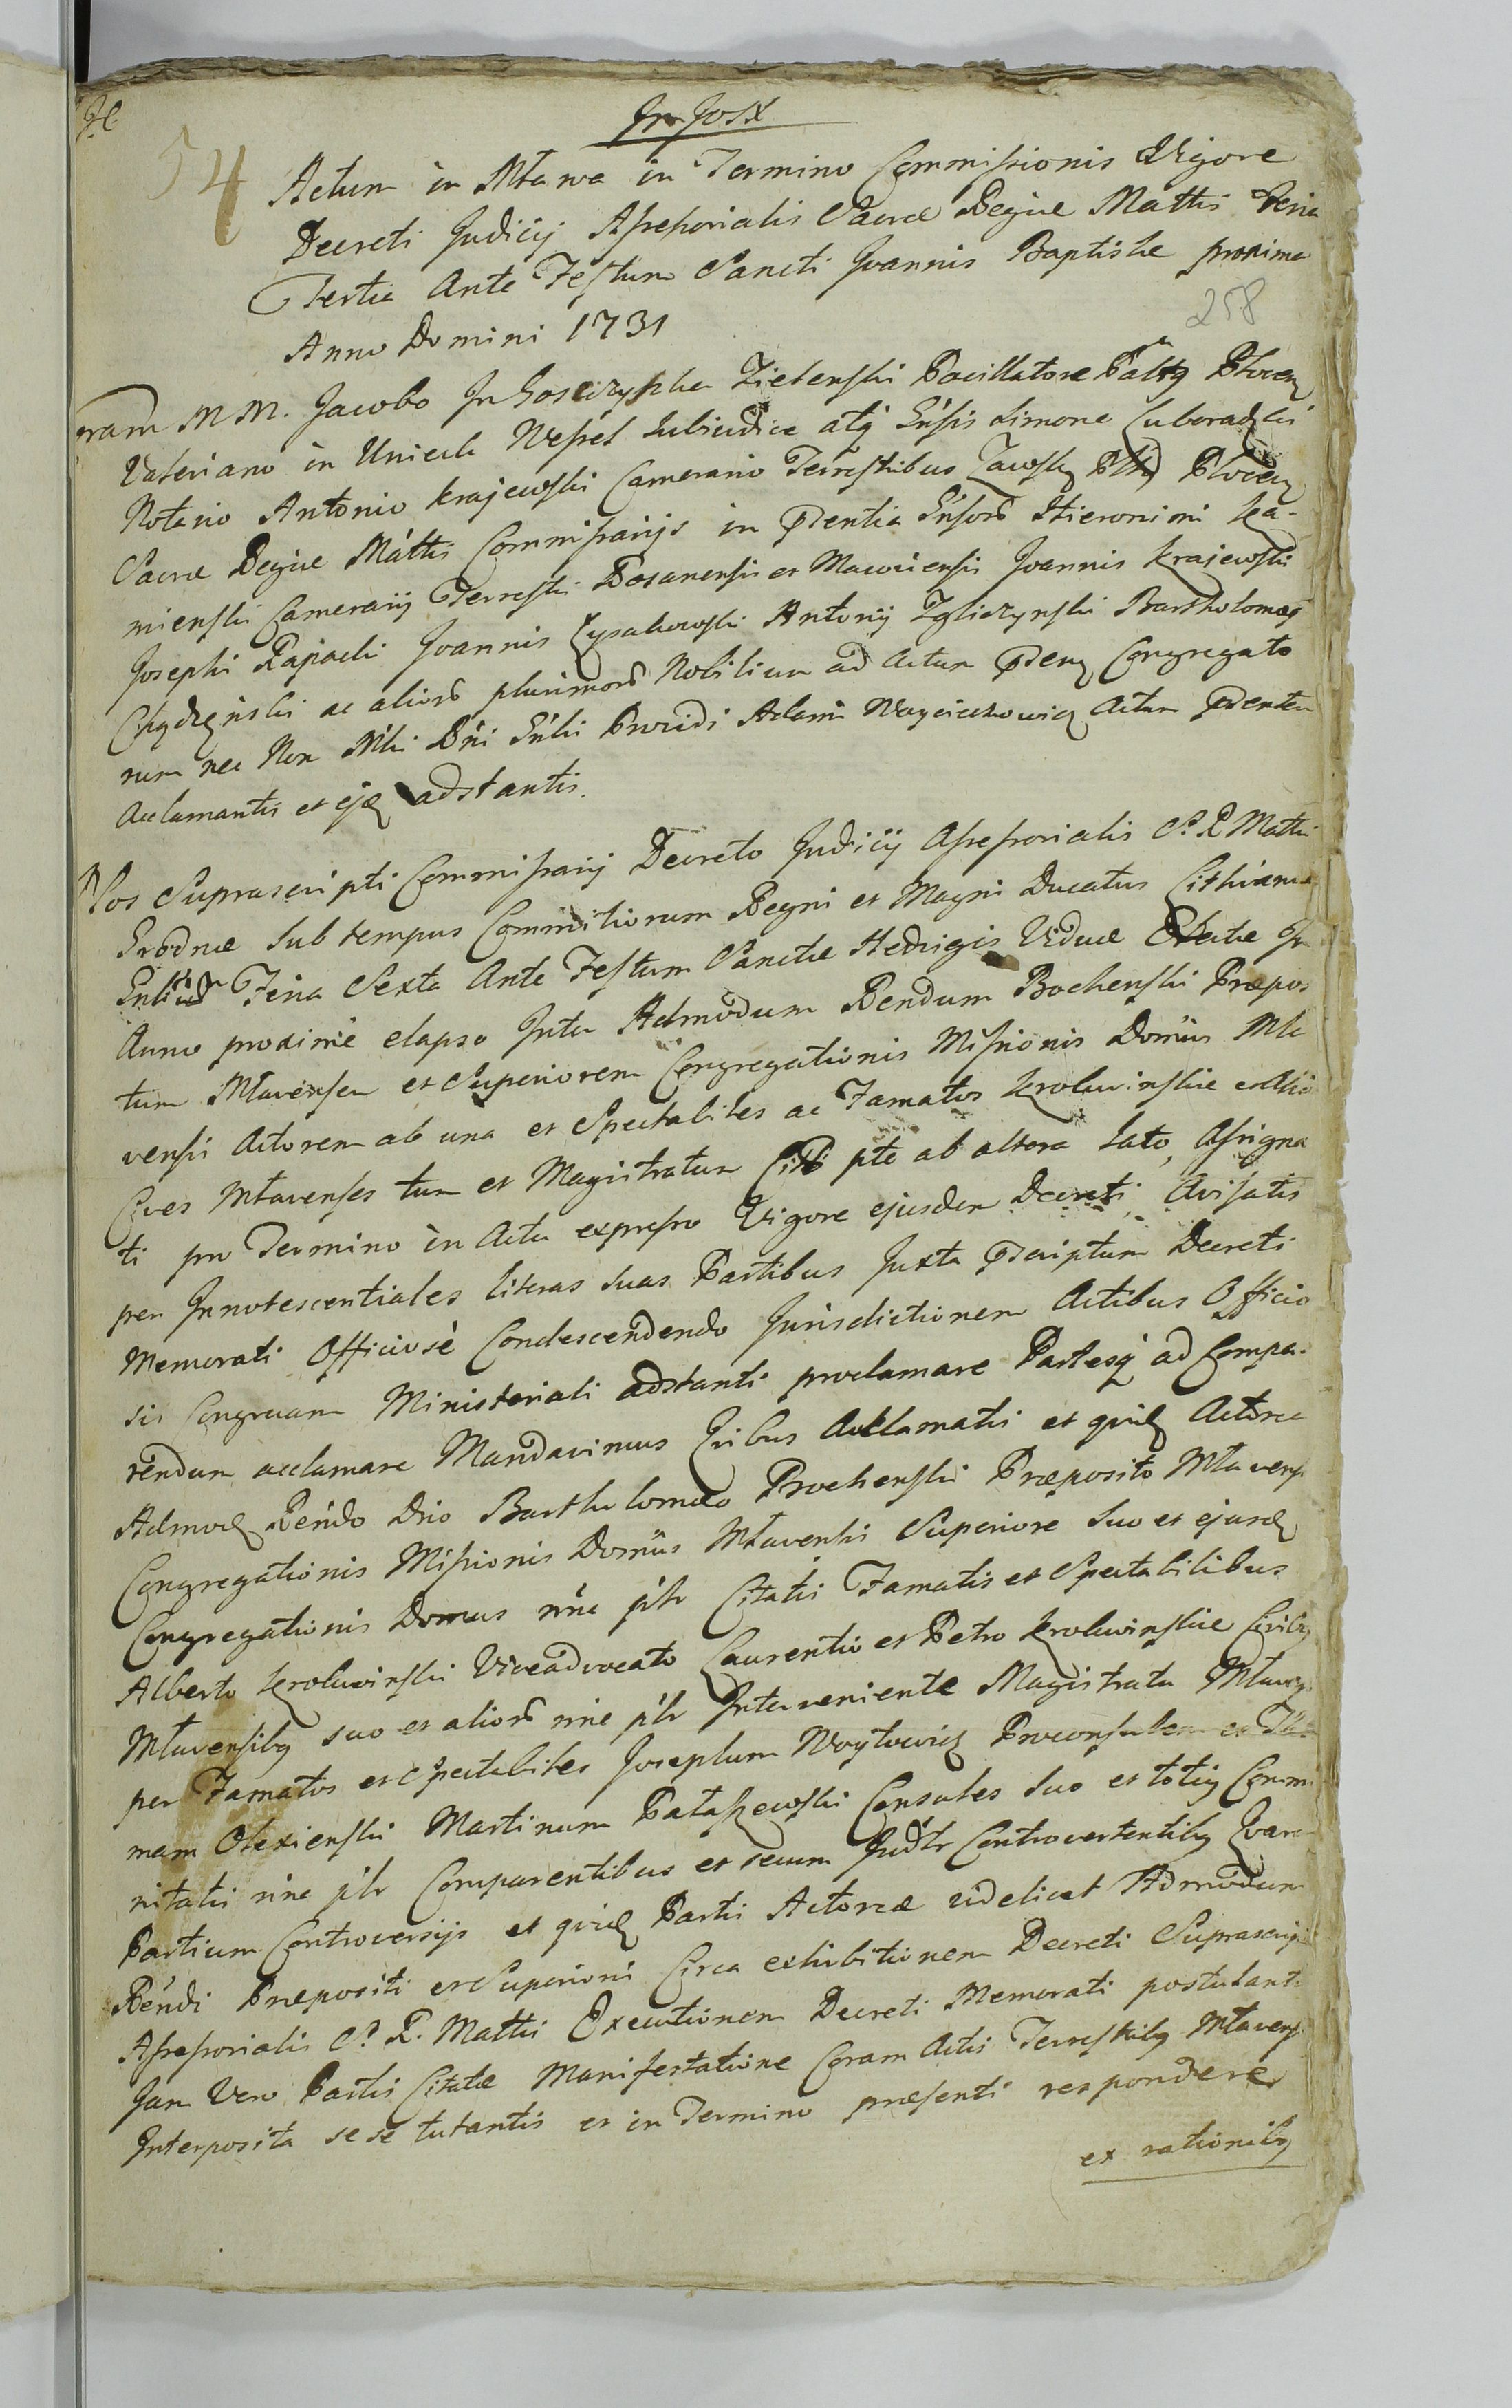 54
258
Actum in Mlawa in Termino Commissionis Vigore
Decreti Judicij Assessorialis Sacræ Regiæ Mattis Feria
Tertia Ante Festum Sancti Joannis Baptistæ proxima
Anno Domini 1731
Coram M M. Jacobo In Gosczyska Zielenski Pocillatore
Valeriano in Unieck Wessel Subiudice atq Gnsis Simone Luboradzki
Notario Antonio Krajewski Camerario Terrestribus Zawskr Plocen
Sacræ Regiæ Mattis Commissarijs in Pdentia Gnsord Hieronimi Ka-
mienski Camerarij Terrestri Rosanensis et Macoviensis Joannis Krajewski
Josephi Rapacki Joannis Łysakowski Antonij Zgliczynski Bartholomæj
Chądzÿnski ac aliord plurimord Nobilium ad Actum Pden Congregato
rum nec Non Mli Dni Gnli Providi Adami Woyciechowicz Actum Pdentem
Acclamantis et ejq adstantis.
Nos Suprascripti Commissarij Decreto Judicij Assessorialis S. R. Mattis
Grodnæ Sub tempus Commitiorum Regni et Magni Ducatus Lithuaniæ
Feria Sexta Ante Festum Sanctæ Hedvigis Viduæ Electæ In
Anno proximè elapso Inter Admodum Rendum Bochenski Præpos
tum Mlavensem et Superiorem Congregationis Missionis Domûs Mla
vensis Actorem ab una et Spectabiles ac Famatos Krolewinskie
Cives Mlavenses tum et Magistratum pte ab altera Lato, Assigna
ti pro Termino in Actu expresso Vigore ejusdem Decreti, Avisatis
per Innotescentiales literas suas Partibus Juxta Pscriptum Decreti
Memorati Officiosè Condescendendo Jurisdictionem Actibus Officio
sis Congruam Ministeriali adstanti proclamare Partesq ad Compa-
rendum acclamare Mandavimus Quibus Acclamatis et quid Actorea
Admod Réndo Dno Bartholomæo Bochenski Præposito Mlavens
Congregationis Missionis Domûs Mlavensis Superiore Suo et ejusd
Congregationis Domus nne plr Citatis Famatis et Spectabilibus
Alberto Krolewinski Viceadvocato Laurentio et Petro Krolewinskie Civibq
Mlavensibq suo et aliord nne plr Interveniente Magistratu Mlaven
per Famatos et Spectabiles Josephum Woytowicz Proconsulem et
mam Olexienski Martinum Pataszewski Consules Suo et totiq Comm
nitatis nne plr Comparentibus et secum Judtr Controvertentibq Quarum
Partium Controversijs et quid Partis Actoreæ videlicet Admodum
Réndi Præpositi et Superioris Circa exhibitionem Decreti Suprascripti
Assessorialis S. R. Mattis Executionem Decreti Memorati postulantis
Jam Vero Partis Citatæ Manifestatione Coram Actis Terrestribq Mlavens
Interposita sese tutantis et in Termino præsenti respondere
ex rationibq